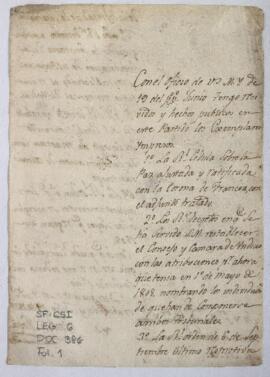 Con el oficio de VS M. Y. de
19 del pp. Junio tengo reci-
vidos y hechos publicos en
este Partido los Exemplares
Impresos.
1º La Rl. Cedula sobre la
Paz ajustada y ratificada
con la Corona de Francia, con
el adjunto tratado.
2º La Rl. Decreto en q. se
ha servido S.M. restablecer
el Consejo y Camara de Yndias
con las atribuciones q. ahora
que tenia en 1º de mayo de
1808, nombrando los individuos
de que han de componerse
ambos tribunales
3º La Rl. orden de 6 de Sep-
tiembre ultimo
SF-CSI
LEG. 6
DOC 386
Fol. 1